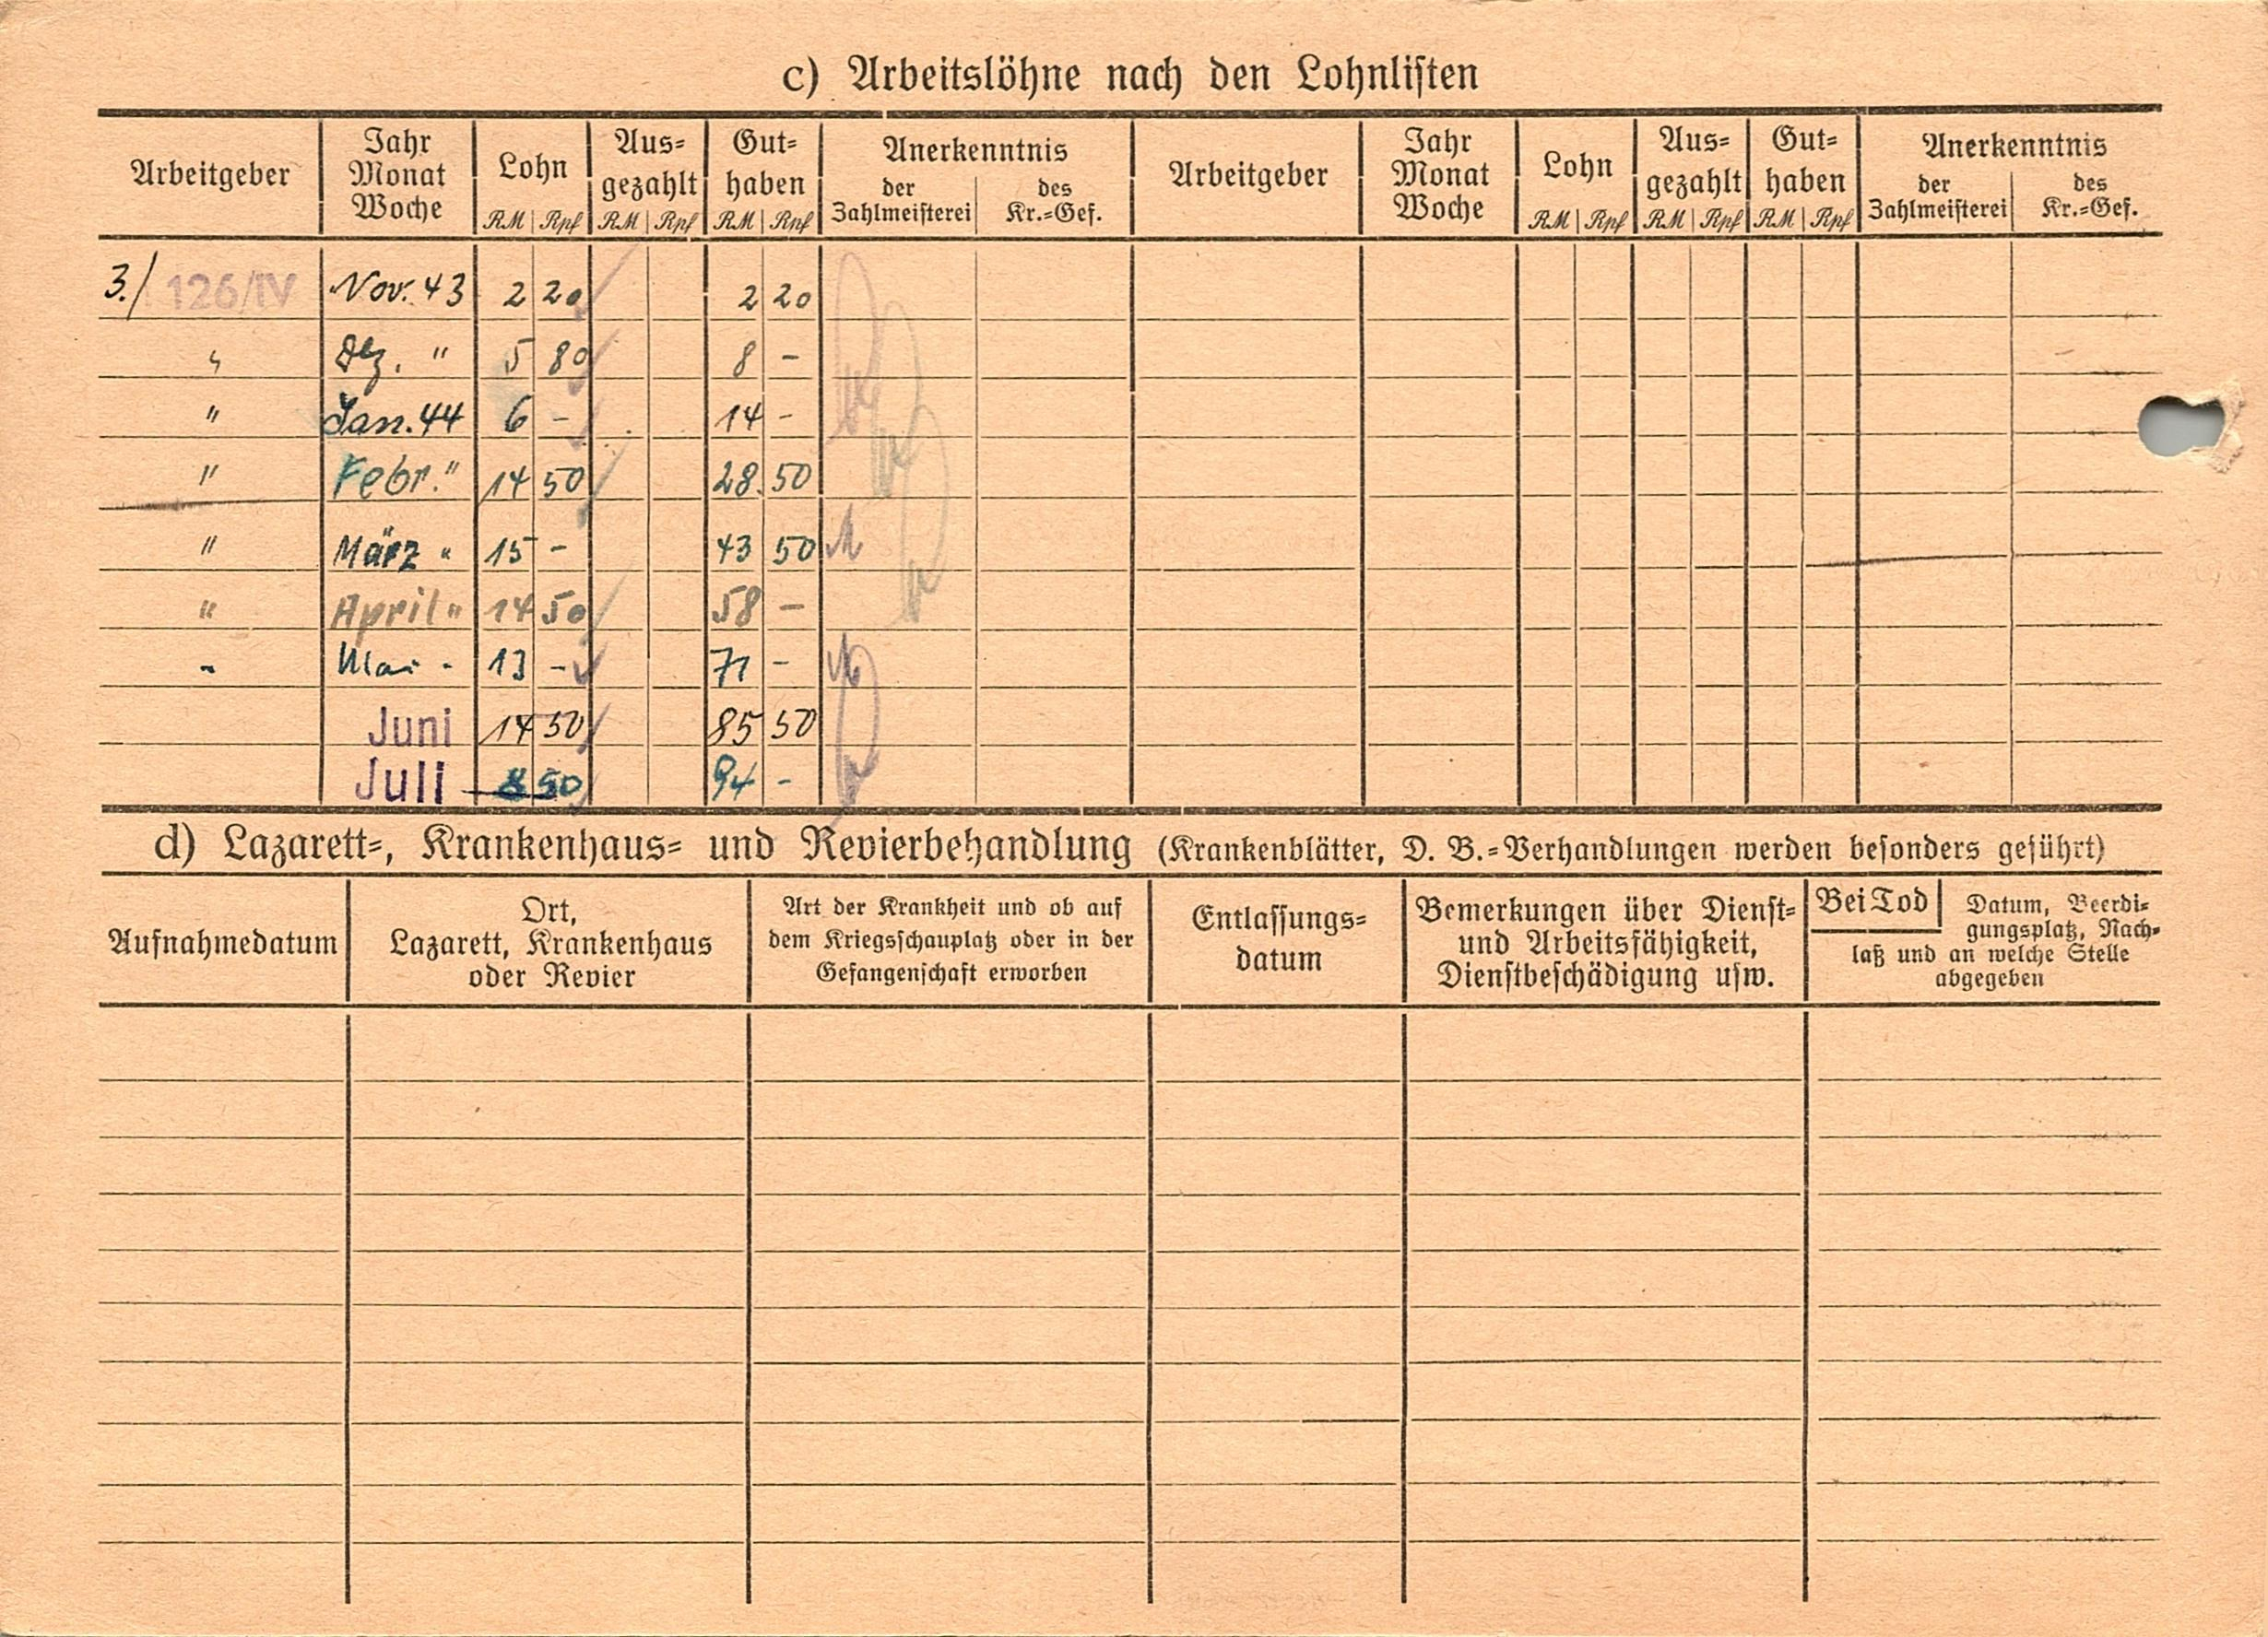 c) Arbeitslöhne nach den Lohnlisten
Arbeitgeber Jahr Monat Woche Lohn RM Rpf Aus- gezahlt RM Rpf Gut- haben RM Rpf Anerkenntnis der Zahlmeisterei des Kr.-Gef. Arbeitgeber Jahr Monat Woche Lohn RM Rpf Aus- gezahlt RM Rpf Gut- haben RM Rpf Anerkenntnis der Zahlmeisterei des Kr.-Gef.
3./ 126/IV Nov. 43 2 20 2 20
" Dez. " 5 80 8 -
" Jan. 44 6 - 14 -
" Febr. " 14 50 28. 50
" März " 15 - 43 50
" April " 14 50 58 -
" Mai " 13 - 71 -
Juni 14 50 85 50
Juli 8 50 94 -
d) Lazarett-, Krankenhaus- und Revierbehandlung (Krankenblätter, D. B.-Verhandlungen werden besonders geführt)
Aufnahmedatum
Ort,
Lazarett, Krankenhaus
oder Revier
Art der Krankheit und ob auf
dem Kriegsschauplatz oder in der
Gefangenschaft erworben
Entlassungs-
datum
Bemerkungen über Dienst-
und Arbeitsfähigkeit,
Dienstbeschädigung usw.
Bei Tod Datum, Beerdi-
gungsplatz, Nach-
laß und an welche Stelle
abgegeben